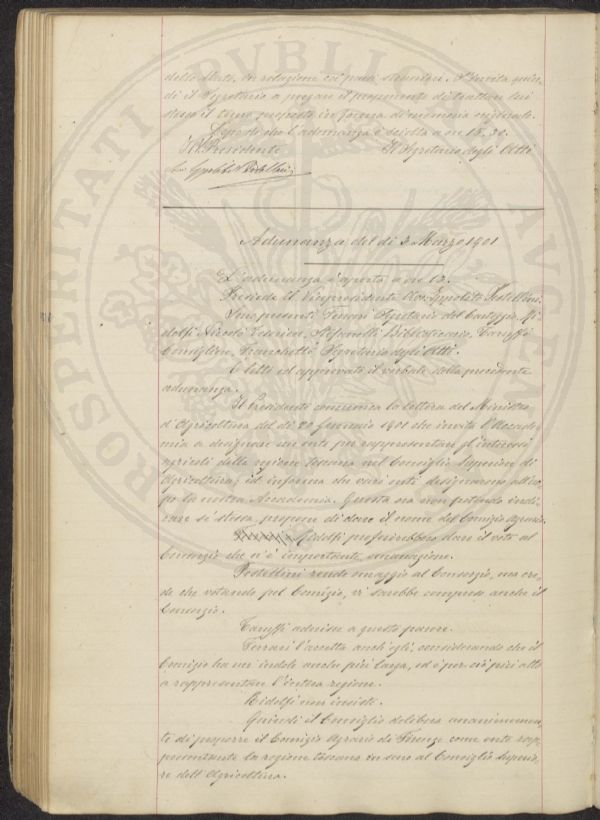 dello Stato, in relazione coi paesi stranieri. S'invita quin-
di il Segretario a pregare il proponente di trattare lui
stesso il tema proposto in forma di memoria originale.
Dopo di che l'adunanza è sciolta a ore 14,30.
Il V. Presidente Il Segretario degli Atti
Ippolito Pestellini
Adunanza del dì 3 Marzo 1901
L'adunanza è aperta a ore 13.
Presiede il Vicepresidente Ippolito Pestellini.
Sono presenti Ferrari Segretario del Carteggio, Ri-
dolfi Niccolò Tesoriere, Stefanelli Bibliotecario, Taruffi
Consigliere, Franchetti Segretario degli Atti.
È letto ed approvato il verbale della precedente
adunanza.
Il Presidente comunica la lettera del Ministro
d'Agricoltura del dì 20 Gennaio 1901 che invita l'Accade-
mia a designare un ente per rappresentare gl'interessi
agricoli della regione toscana nel Consiglio Superiore di
Agricoltura, ed informa che vari enti designarono all'uo-
po la nostra Accademia. Questa ora non potendo indi-
care sè stessa propone di dare il nome del Comizio Agrario.
Ridolfi preferirebbe dare il voto al
Consorzio che n'è importante emanazione.
Pestellini rende omaggio al Consorzio, ma cre-
de che votando pel Comizio, vi sarebbe compreso anche il
Consorzio.
Taruffi aderisce a questo parere.
Ferrari l'accetta anch'egli, considerando che il
Comizio ha un'indole anche più larga, ed è per ciò più atto
a rappresentare l'intera regione.
Ridolfi non insiste.
Quindi il Consiglio delibera unanimemen-
te di proporre il Comizio Agrario di Firenze come ente rap-
presentante la regione toscana in seno al Consiglio Superio-
re dell'Agricoltura.
PROSPERITATI PVBLICAE AVGENDAE